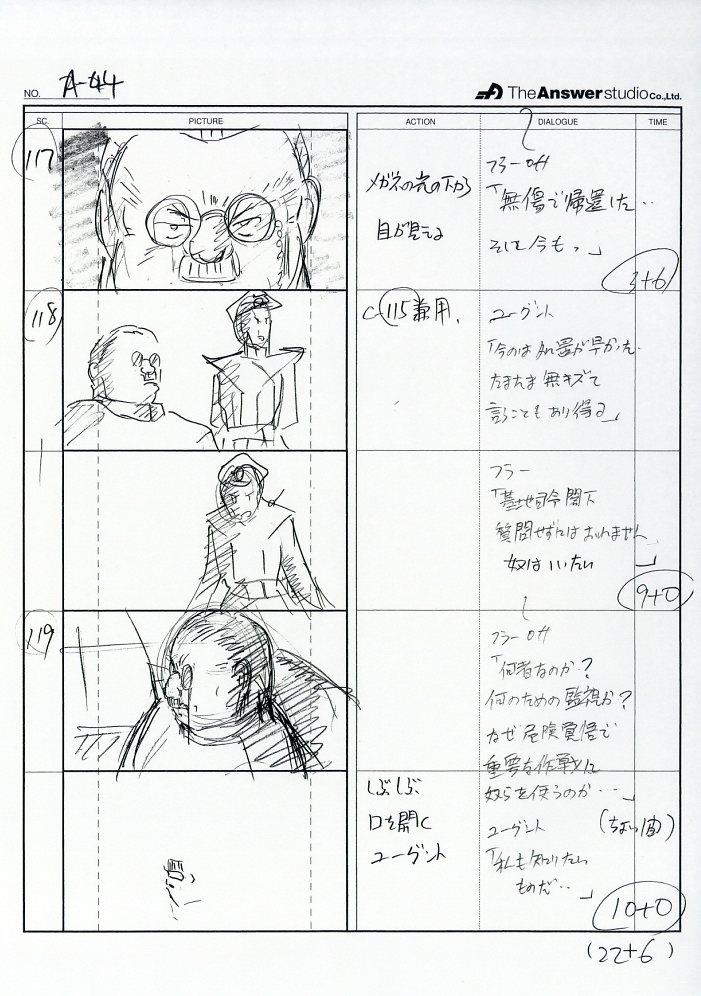 NO. A-44
The Answer studio Co.,Ltd.
SC. PICTURE ACTION DIALOGUE TIME
117
メガネの光の下から
目が見える
フラー off
「無傷で帰還した‥
そして今もっ」
3+6
118
C-115兼用、
ユーゲント
「今のは処置が早かった
たまたま無キズで
言うこともあり得る」
フラー
「基地司令閣下
質問せずにはおれません
奴はいったい」
9+0
119
フラー off
「何者なのか?
何のための監視か?
なぜ危険覚悟で
重要な作戦に
奴らを使うのか…」
しぶしぶ
口を開く
ユーゲント
ユーゲント
(ちょい間)
「私も知りたい
ものだ‥」
10+0
(22+6)